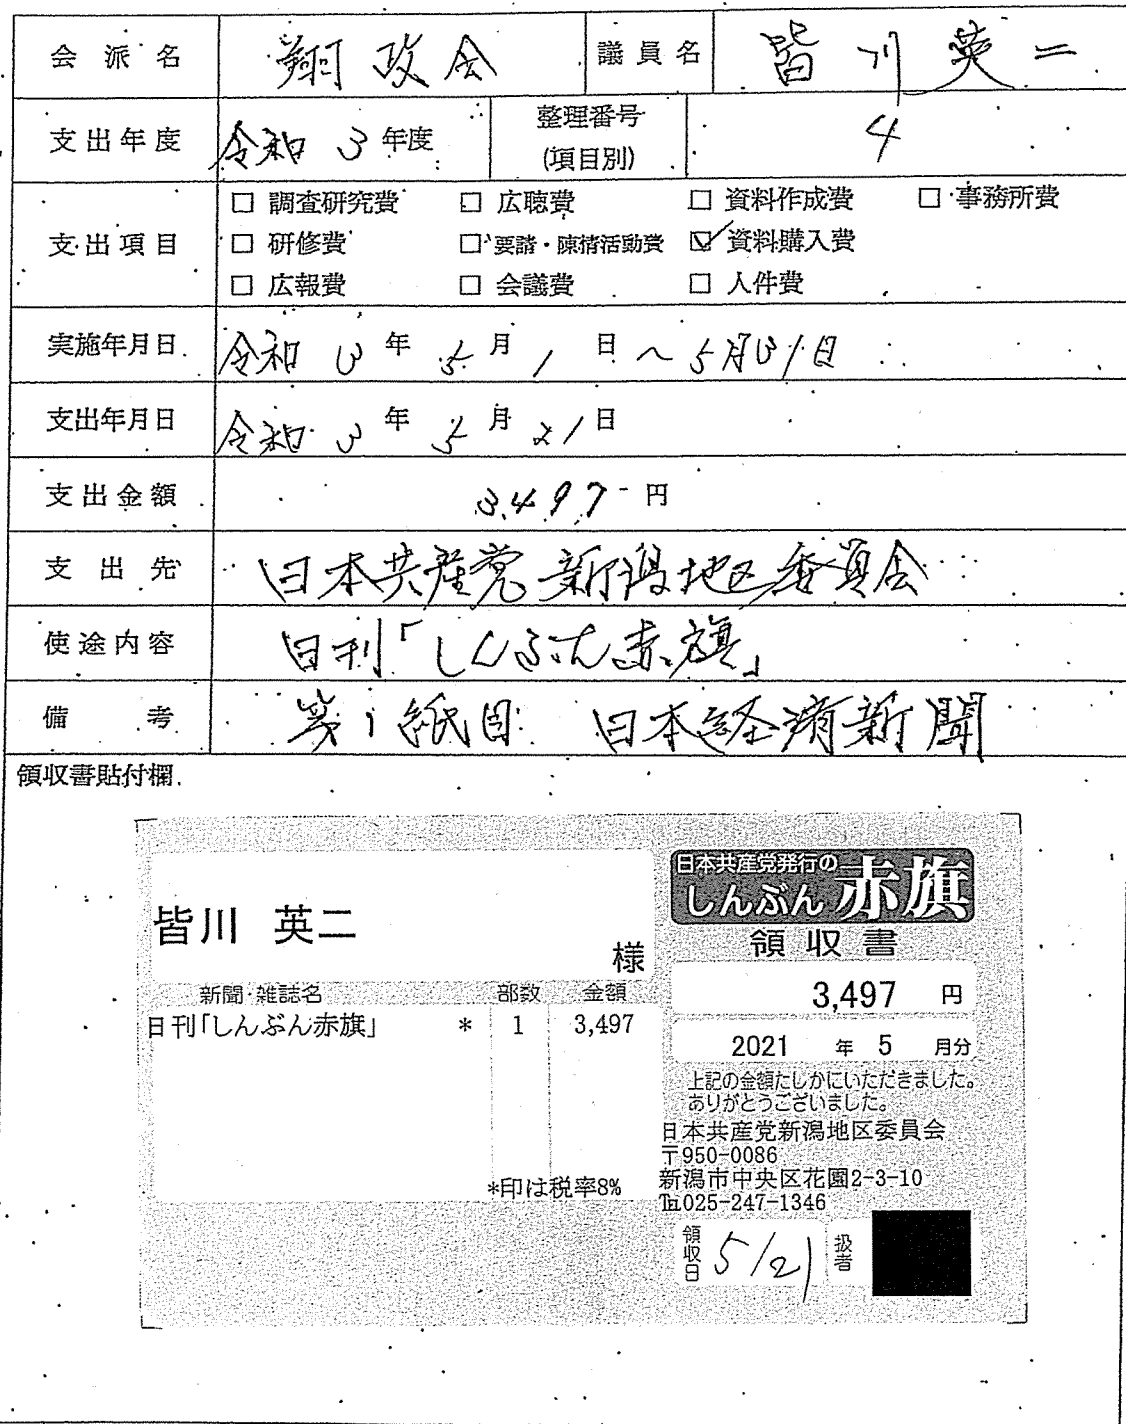 会派名 翔政会 議員名 皆川英二
支出年度 令和 3 年度 整理番号 (項目別) 4
支出項目
□ 調査研究費 □ 広聴費 □ 資料作成費 □ 事務所費
□ 研修費 □ 要請・陳情活動費 ☑ 資料購入費
□ 広報費 □ 会議費 □ 人件費
実施年月日 令和 3 年 5 月 1 日 ~ 5月31日
支出年月日 令和 3 年 5 月 21 日
支出金額 3,497- 円
支出先 日本共産党新潟地区委員会
使途内容 日刊「しんぶん赤旗」
備考 第1紙目 日本経済新聞
領収書貼付欄
皆川 英二
様
新聞・雑誌名 部数 金額
日刊「しんぶん赤旗」 * 1 3,497
*印は税率8%
日本共産党発行の
しんぶん赤旗
領収書
3,497 円
2021 年 5 月分
上記の金額たしかにいただきました。
ありがとうございました。
日本共産党新潟地区委員会
〒950-0086
新潟市中央区花園2-3-10
℡025-247-1346
領収日 5/21 扱者